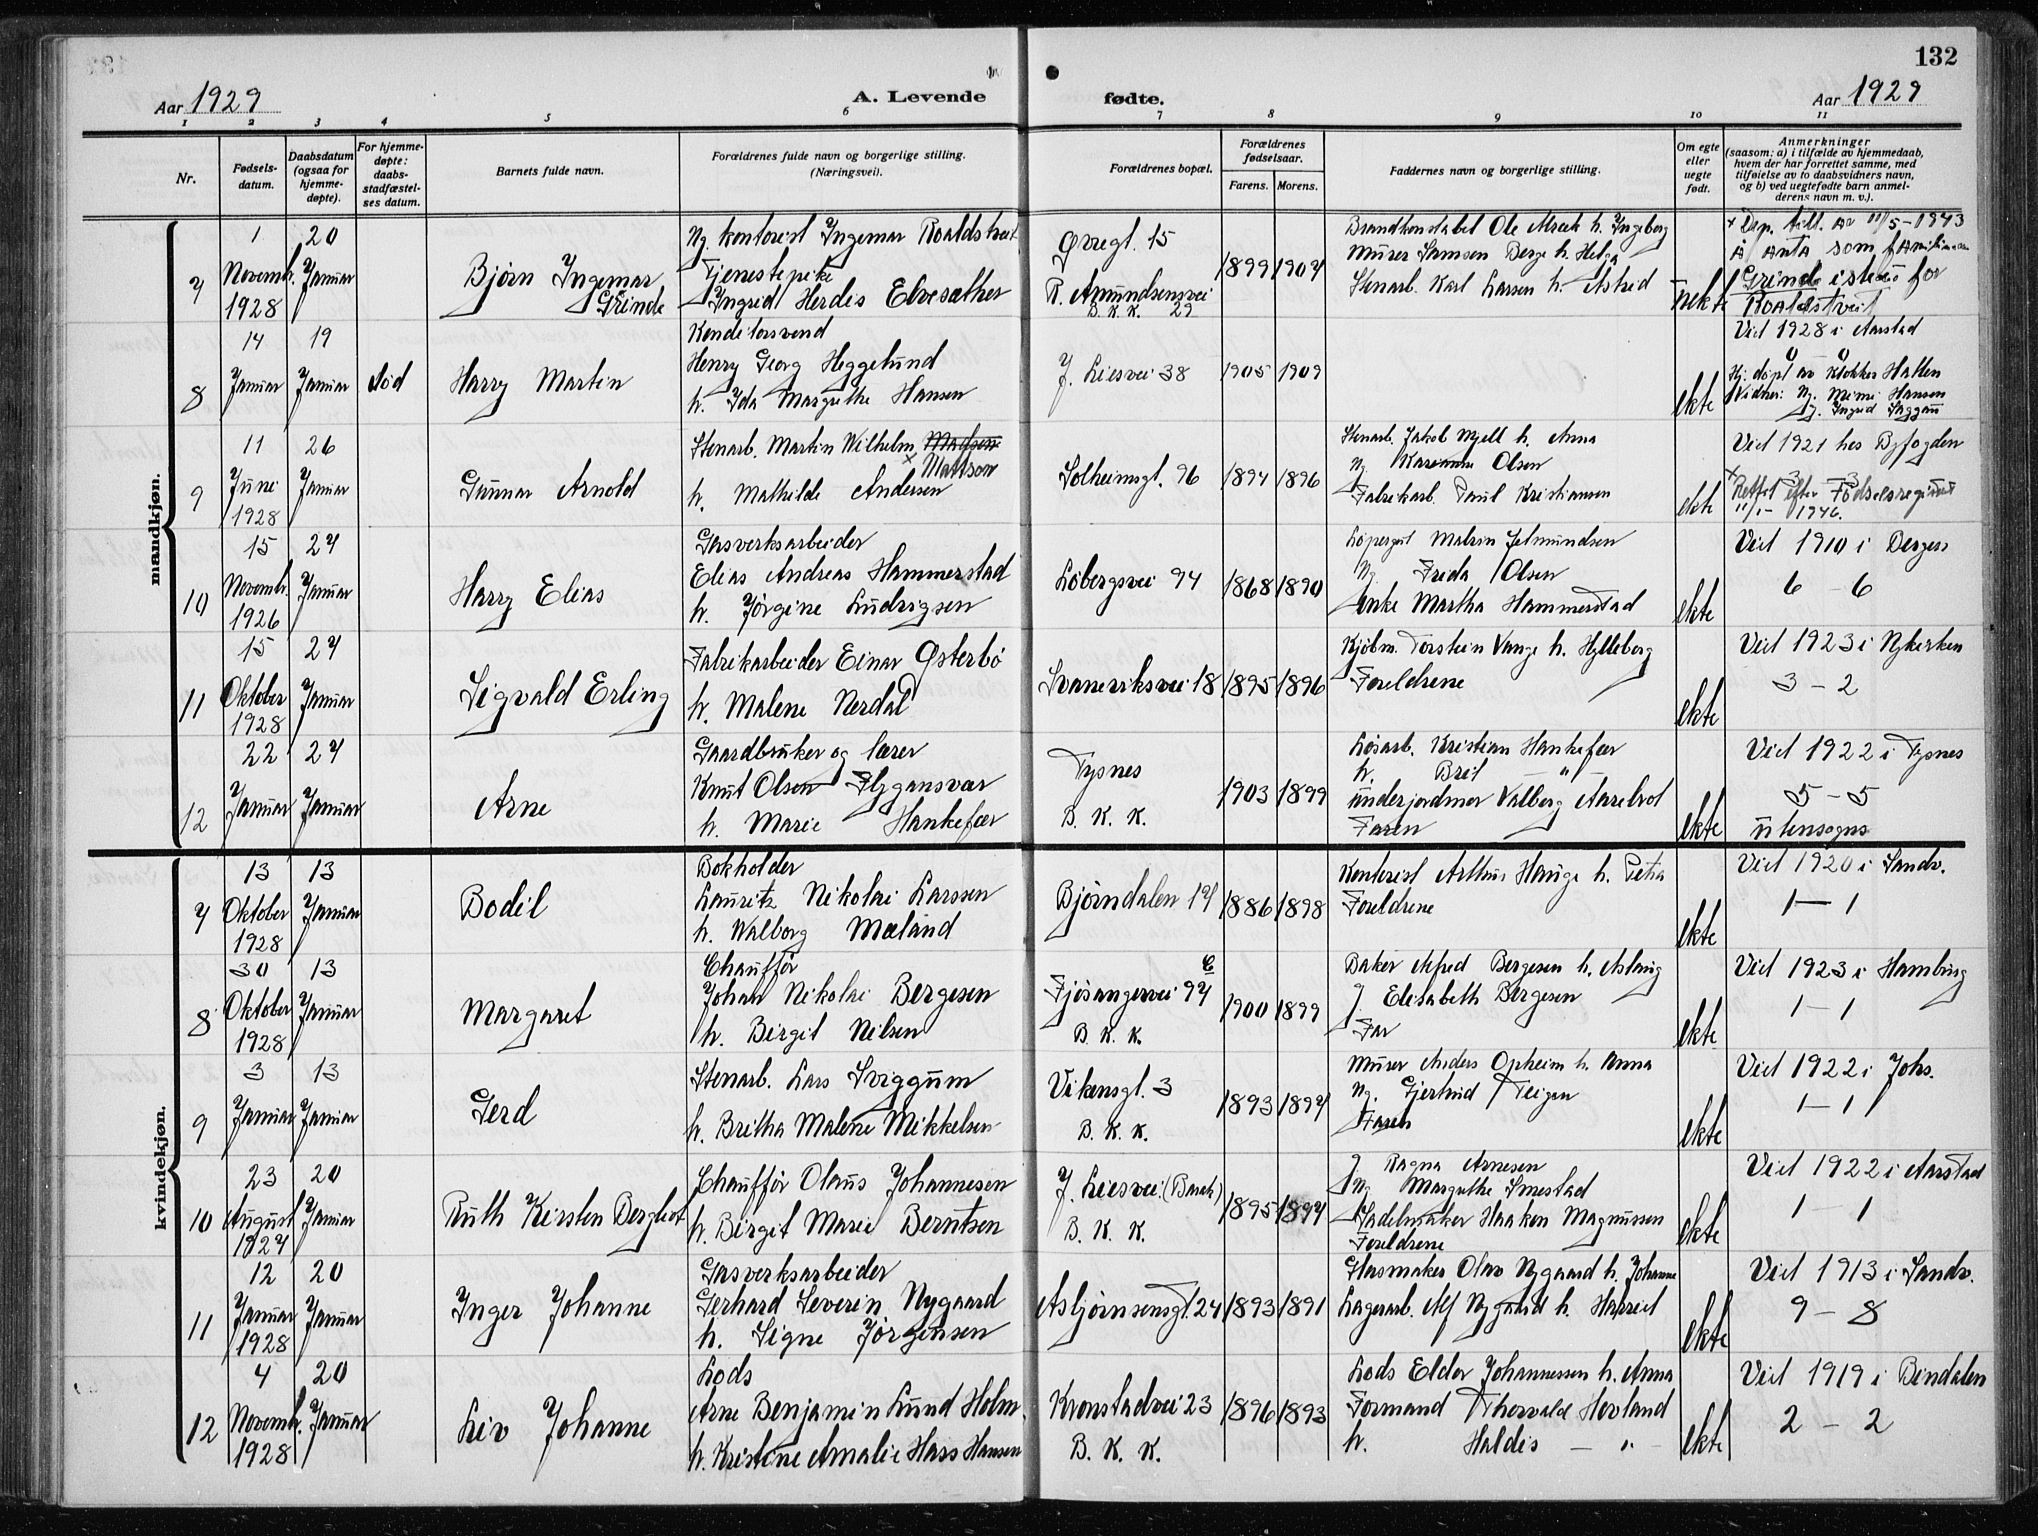 132
Aar 1929
A. Levende fødte.
Aar 1929
1 2 3 4 5 6 7 8 9 10 11
Nr.
Fødsels-
datum.
Daabsdatum
(ogsaa for
hjemme-
døpte).
For hjemme-
døpte:
daabs-
stadfæstel-
ses datum.
Barnets fulde navn.
Forældrenes fulde navn og borgerlige stilling.
(Næringsvei).
Forældrenes bopæl.
Forældrenes
fødselsaar.
Farens. Morens.
Faddernes navn og borgerlige stilling.
Om egte
eller
uegte
født.
Anmerkninger
(saasom: a) i tilfælde av hjemmedaab,
hvem der har forrettet samme, med
tilføielse av to daabsvidners navn,
og b) ved uegtefødte barn anmel-
derens navn m. v.).
mandkjøn.
7
1
Novembr.
1928
20
Januar
Bjørn Ingemar
Grinde
Ng. kontorist Ingemar Roaldstveit
Tjenestepike
Ingrid Herdis Elvesæther
Øvregt. 15
R. Amundsensvei
B. K. K. 29
1899 1907
Brandkonstabel Ole h. Ingeborg
Murer Samson Berge h. Helga
Stenarb. Karl Larsen h. Astrid
uekte
+ Dep. till. av 11/5-1943
å anta som familienavn
Grinde istedet for
Roaldstveit
8
14
Januar
19
Januar
død
Harry Martin
Konditorsvend
Henry Georg Heggelund
h. Ida Margrethe Hansen
J. Liesvei 38
1905 1909
ekte
Viet 1928 i Aarstad
Hj: døpt av klokker Hatlen
Vidner: Ng. Mimi Hansen
Ingrid
9
11
Juni
1928
26
Januar
Gunnar Arnold
Stenarb. Martin Wilhelm Madsen
× Mattson
h. Mathilde Andersen
Solheimsgt. 96
1894 1896
Stenarb. Jakob Njell h. Anna
Ng. Olsen
Fabrikarb. Paul Kristiansen
ekte
Viet 1921 hos Byfogden
3 - 3
× Rettet efter Fødselsregistret
11/1- 1946.
10
15
Novembr.
1926
27
Januar
Harry Elias
Gasverksarbeider
Elias Andreas Hammerstad
h. Jørgine Ludvigsen
Løbergsvei 94
1868 1890
Løpergut
Ng. Frida Olsen
Enke Martha Hammerstad
ekte
Viet 1910 i Bergen
6 - 6
11
15
Oktober
1928
27
Januar
Sigvald Erling
Fabrikarbeider Einar Østerbø
h. Malene Nerdal
Svaneviksvei 18
1895 1896
Kjøbm. Torstein Vange h. Hylleborg
Foreldrene
ekte
Viet 1923 i Nykirken
3 - 2
12
22
Januar
27
Januar
Arne
Gaardbruker og lærer
Knut Olsen Flygansvær
h. Marie Hankefær
Tysnes
B. K. K.
1903 1899
Løsarb. Kristian Hankefær
h. Brit "
underjordmor Valborg
Faren
ekte
Viet 1922 i Tysnes
5 - 5
utensogns
kvindekjøn.
7
13
Oktober
1928
13
Januar
Bodil
Bokholder
Lauritz Nikolai Larssen
h. Walborg Mæland
Bjørndalen 17
1886 1898
Kontorist Arthur Hauge h. Petra
Foreldrene
ekte
Viet 1920 i Sandv.
1 - 1
8
30
Oktober
1928
13
Januar
Margaret
Chauffør
Johan Nikolai Bergesen
h. Birgit Nilsen
Fjøsangervei 97 C
B. K. K.
1900 1899
Baker Alfred Bergesen h. Aslaug
J. Elisabeth Bergesen
Far
ekte
Viet 1923 i Hamburg
1 - 1
9
3
Januar
13
Januar
Gerd
Stenarb. Lars Sviggum
h. Britha Malene Mikkelsen
Vikensgt. 3
B. K. K.
1893 1897
Murer Anders Opheim h. Anna
Ng. Gjertrud Teigen
Faren
ekte
Viet 1922 i Johs.
1 - 1
10
23
August
1927
20
Januar
Ruth Kirsten Bergliot
Chauffør Olaus Johannesen
h. Birgit Marie Berntsen
J. Liesvei (Barak)
B. K. K.
1895 1897
J. Ragna Arnesen
Ng. Margrethe Smestad
Sadelmaker Haakon Magnussen
Foreldrene
ekte
Viet 1922 i Aarstad
1 - 1
11
12
Januar
1928
20
Januar
Inger Johanne
Gasverksarbeider
Gerhard Severin Nygaard
h. Signe Jørgensen
Asbjørnsensgt. 24
1893 1891
Glasmaker Olav Nygaard h. Johanne
Lagerarb. Alf Nygaard h. Harriet
ekte
Viet 1913 i Sandv.
9 - 8
12
4
Novembr.
1928
20
Januar
Liv Johanne
Lods
Arne Benjamin Lund Holm
h. Kristine Amalie Hass Hansen
Kronstadvei 23
B. K. K.
1896 1893
Lods Eldor Johannessen h. Anna
Formand Thorvald Hovland
h. Haldis - " -
ekte
Viet 1919 i Bindalen
2 - 2